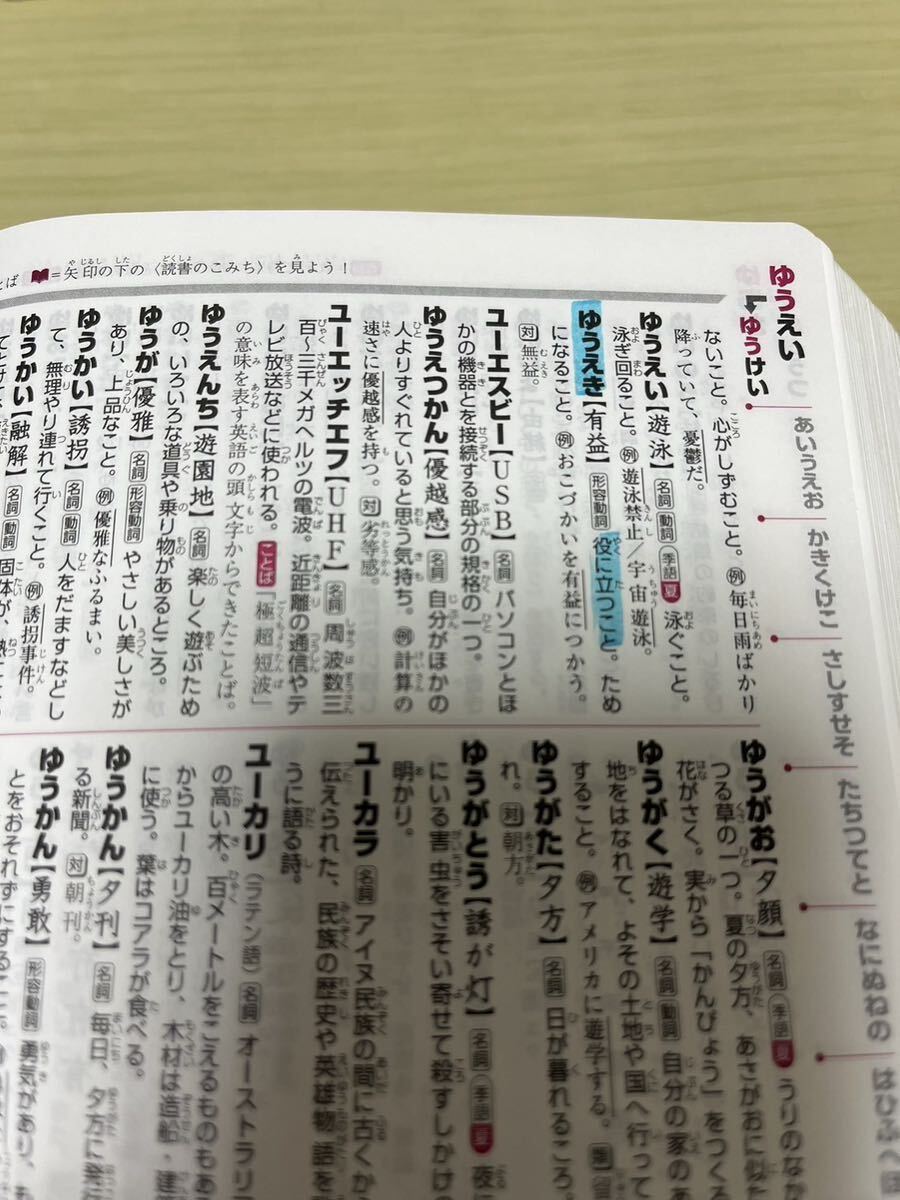 とば 📖=矢印の下の〈読書のこみち〉を見よう！
ゆうえい
ゆうけい
あいうえお
かきくけこ
さしすせそ
たちつてと
なにぬねの
はひふへほ
ないこと。心がしずむこと。例毎日雨ばかり
降っていて、憂鬱だ。
ゆうえい【遊泳】名詞 動詞 季語 夏 泳ぐこと。
泳ぎ回ること。例遊泳禁止／宇宙遊泳。
ゆうえき【有益】形容動詞 役に立つこと。ため
になること。例おこづかいを有益につかう。
対無益。
ユーエスビー【USB】名詞 パソコンとほ
かの機器とを接続する部分の規格の一つ。
ゆうえつかん【優越感】名詞 自分がほかの
人よりすぐれていると思う気持ち。例計算の
速さに優越感を持つ。対劣等感。
ユーエッチエフ【UHF】名詞 周波数三
百〜三千メガヘルツの電波。近距離の通信やテ
レビ放送などに使われる。ことば「極超短波」
の意味を表す英語の頭文字からできたことば。
ゆうえんち【遊園地】名詞 楽しく遊ぶため
の、いろいろな道具や乗り物があるところ。
ゆうが【優雅】名詞 形容動詞 やさしい美しさが
あり、上品なこと。例優雅なふるまい。
ゆうかい【誘拐】名詞 動詞 人をだますなどし
て、無理やり連れて行くこと。例誘拐事件。
ゆうかい【融解】名詞 動詞 固体が、熱
ゆうがお【夕顔】名詞 季語 夏 うりのなか
つる草の一つ。夏の夕方、あさがおに似
花がさく。実から「かんぴょう」をつく
ゆうがく【遊学】名詞 動詞 自分の家の
地をはなれて、よその土地や国へ行って
すること。例アメリカに遊学する。
ゆうがた【夕方】名詞 日が暮れるころ。
れ。対朝方。
ゆうがとう【誘が灯】名詞 季語 夏 夜に
にいる害虫をさそい寄せて殺すしかけの
明かり。
ユーカラ 名詞 アイヌ民族の間に古くか
伝えられた、民族の歴史や英雄物語を
うに語る詩。
ユーカリ（ラテン語）名詞 オーストラリ
の高い木。百メートルをこえるものもあ
からユーカリ油をとり、木材は造船・建
に使う。葉はコアラが食べる。
ゆうかん【夕刊】名詞 毎日、夕方に発行
る新聞。対朝刊。
ゆうかん【勇敢】形容動詞 勇気があり、も
とをおそれずにすること。